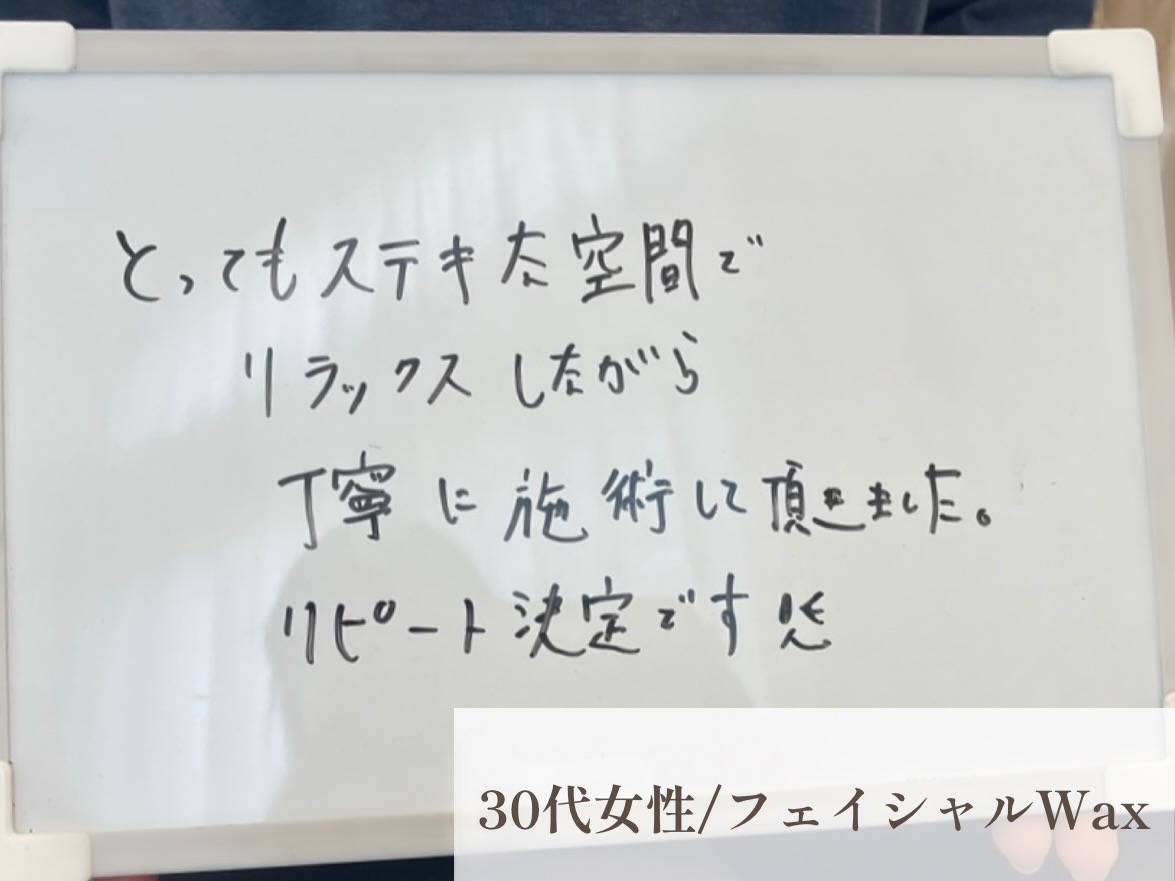 とってもステキな空間で
リラックスしながら
丁寧に施術して頂きました。
リピート決定です
30代女性/フェイシャルWax